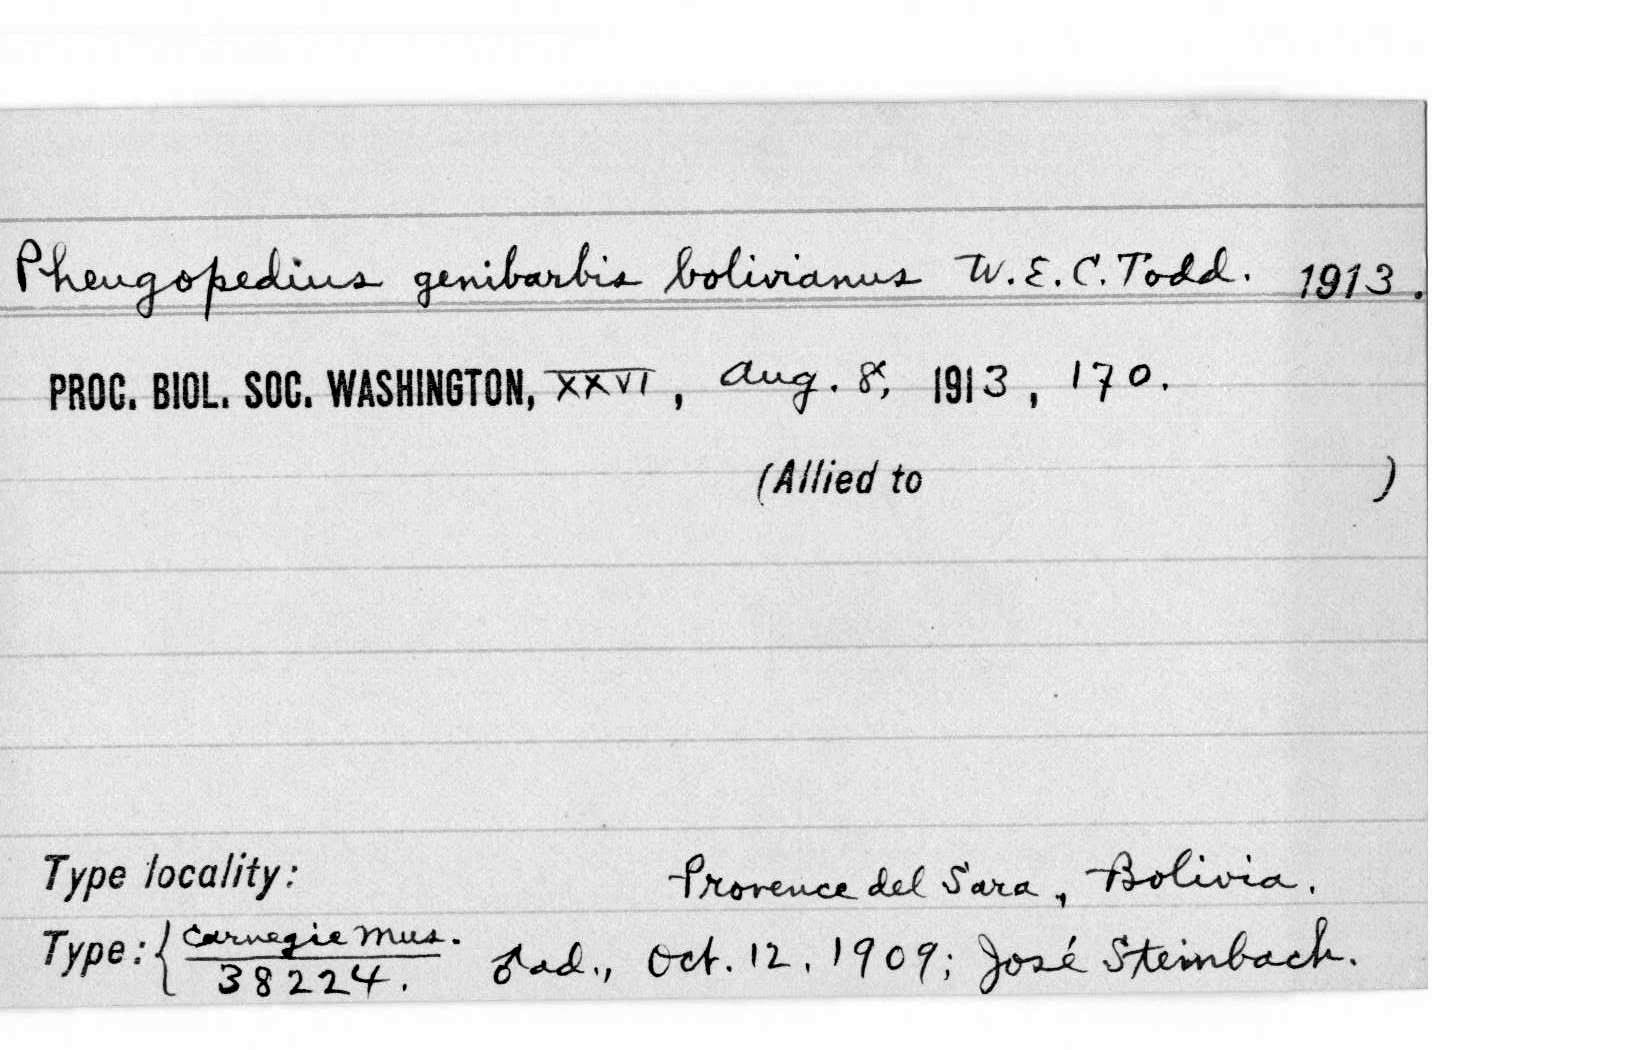 Pheugopedius genibarbis bolivianus W.E.C.Todd. 1913.
PROC. BIOL. SOC. WASHINGTON, XXVI, Aug. 8, 1913, 170.
(Allied to )
Type locality: Provence del Sara, Bolivia.
Type: { Carnegie Mus. ♂ad., Oct. 12, 1909; José Steinbach.
38224.